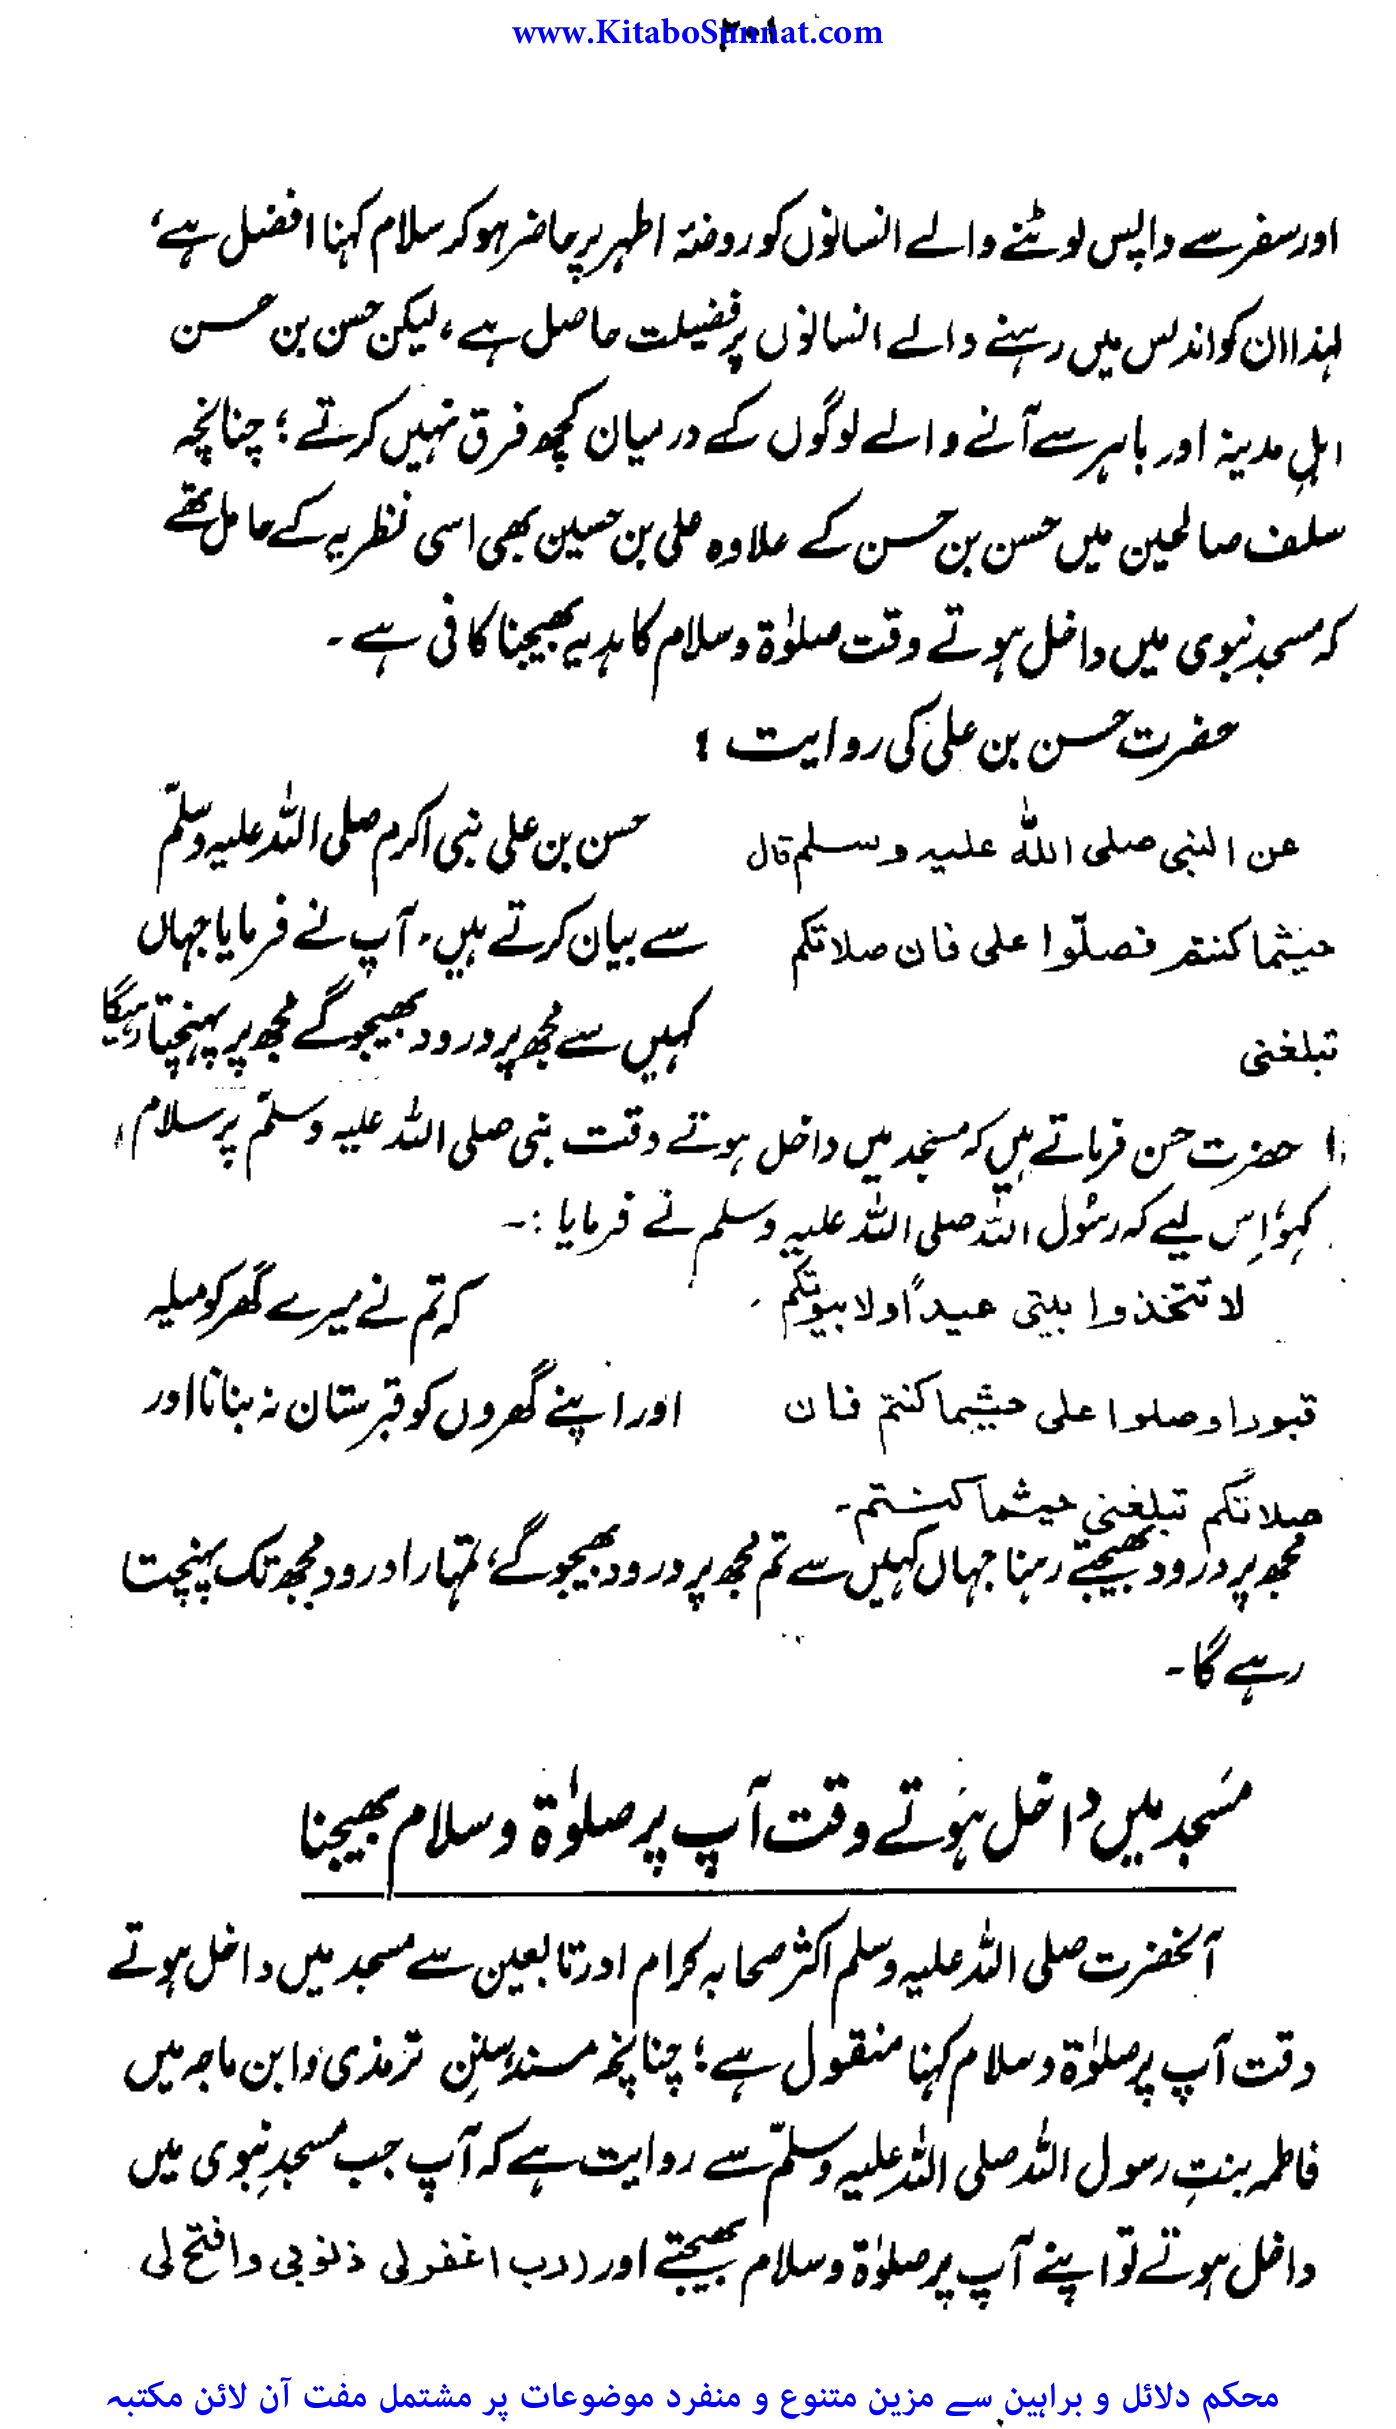 www.KitaboSunnat.com
اور سفر سے واپس لوٹنے والے انسانوں کو روضۂ اطہر پر حاضر ہو کر سلام کہنا افضل ہے،
لہذا ان کو اندلس میں رہنے والے انسانوں پر فضیلت حاصل ہے، لیکن حسن بن حسن
اہلِ مدینہ اور باہر سے آنے والے لوگوں کے درمیان کچھ فرق نہیں کرتے؛ چنانچہ
سلف صالحین میں حسن بن حسن کے علاوہ علی بن حسین بھی اسی نظریہ کے حامل تھے
کہ مسجد نبوی میں داخل ہوتے وقت صلوٰۃ و سلام کا ہدیہ بھیجنا کافی ہے۔
حضرت حسن بن علی کی روایت؛
عن النبی صلی اللہ علیہ وسلم قال
حسن بن علی نبی اکرم صلی اللہ علیہ وسلّم
حیثما کنتم فصلّوا علی فان صلاتکم
سے بیان کرتے ہیں۔ آپ نے فرمایا جہاں
تبلغنی
کہیں سے مجھ پر درود بھیجو گے مجھ پر پہنچتا رہیگا
حضرت حسن فرماتے ہیں کہ مسجد میں داخل ہوتے وقت نبی صلی اللہ علیہ وسلّم پر سلام
کہو، اِس لیے کہ رسُول اللہ صلی اللہ علیہ وسلم نے فرمایا :۔
لا تتخذوا بیتی عیداً ولا بیوتکم
کہ تم نے میرے گھر کو میلہ
قبورا وصلوا علی حیثما کنتم فان
اور اپنے گھروں کو قبرستان نہ بنانا اور
صلاتکم تبلغنی حیثما کنتم۔
مجھ پر درود بھیجتے رہنا جہاں کہیں سے تم مجھ پر درود بھیجو گے، تمہارا درود مجھ تک پہنچتا
رہے گا۔
مسَجد میں داخل ہوَتے وقت آپ پر صلوٰۃ و سلام بھیجنا
آنحضرت صلی اللہ علیہ وسلم اکثر صحابہ کرام اور تابعین سے مسجد میں داخل ہوتے
وقت آپ پر صلوٰۃ و سلام کہنا منقول ہے؛ چنانچہ مسند، سننِ ترمذی و ابن ماجہ میں
فاطمہ بنتِ رسول اللہ صلی اللہ علیہ وسلّم سے روایت ہے کہ آپ جب مسجدِ نبوی میں
داخل ہوتے تو اپنے آپ پر صلوٰۃ و سلام بھیجتے اور (رب اغفرلی ذنوبی وافتح لی
محکم دلائل و براہین سے مزین متنوع و منفرد موضوعات پر مشتمل مفت آن لائن مکتبہ